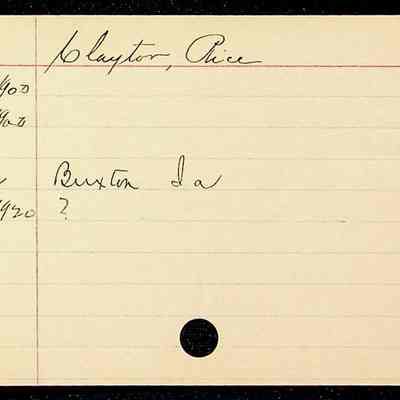 Clayton, Rice
1900
1900
Buxton Ia
1920 ?